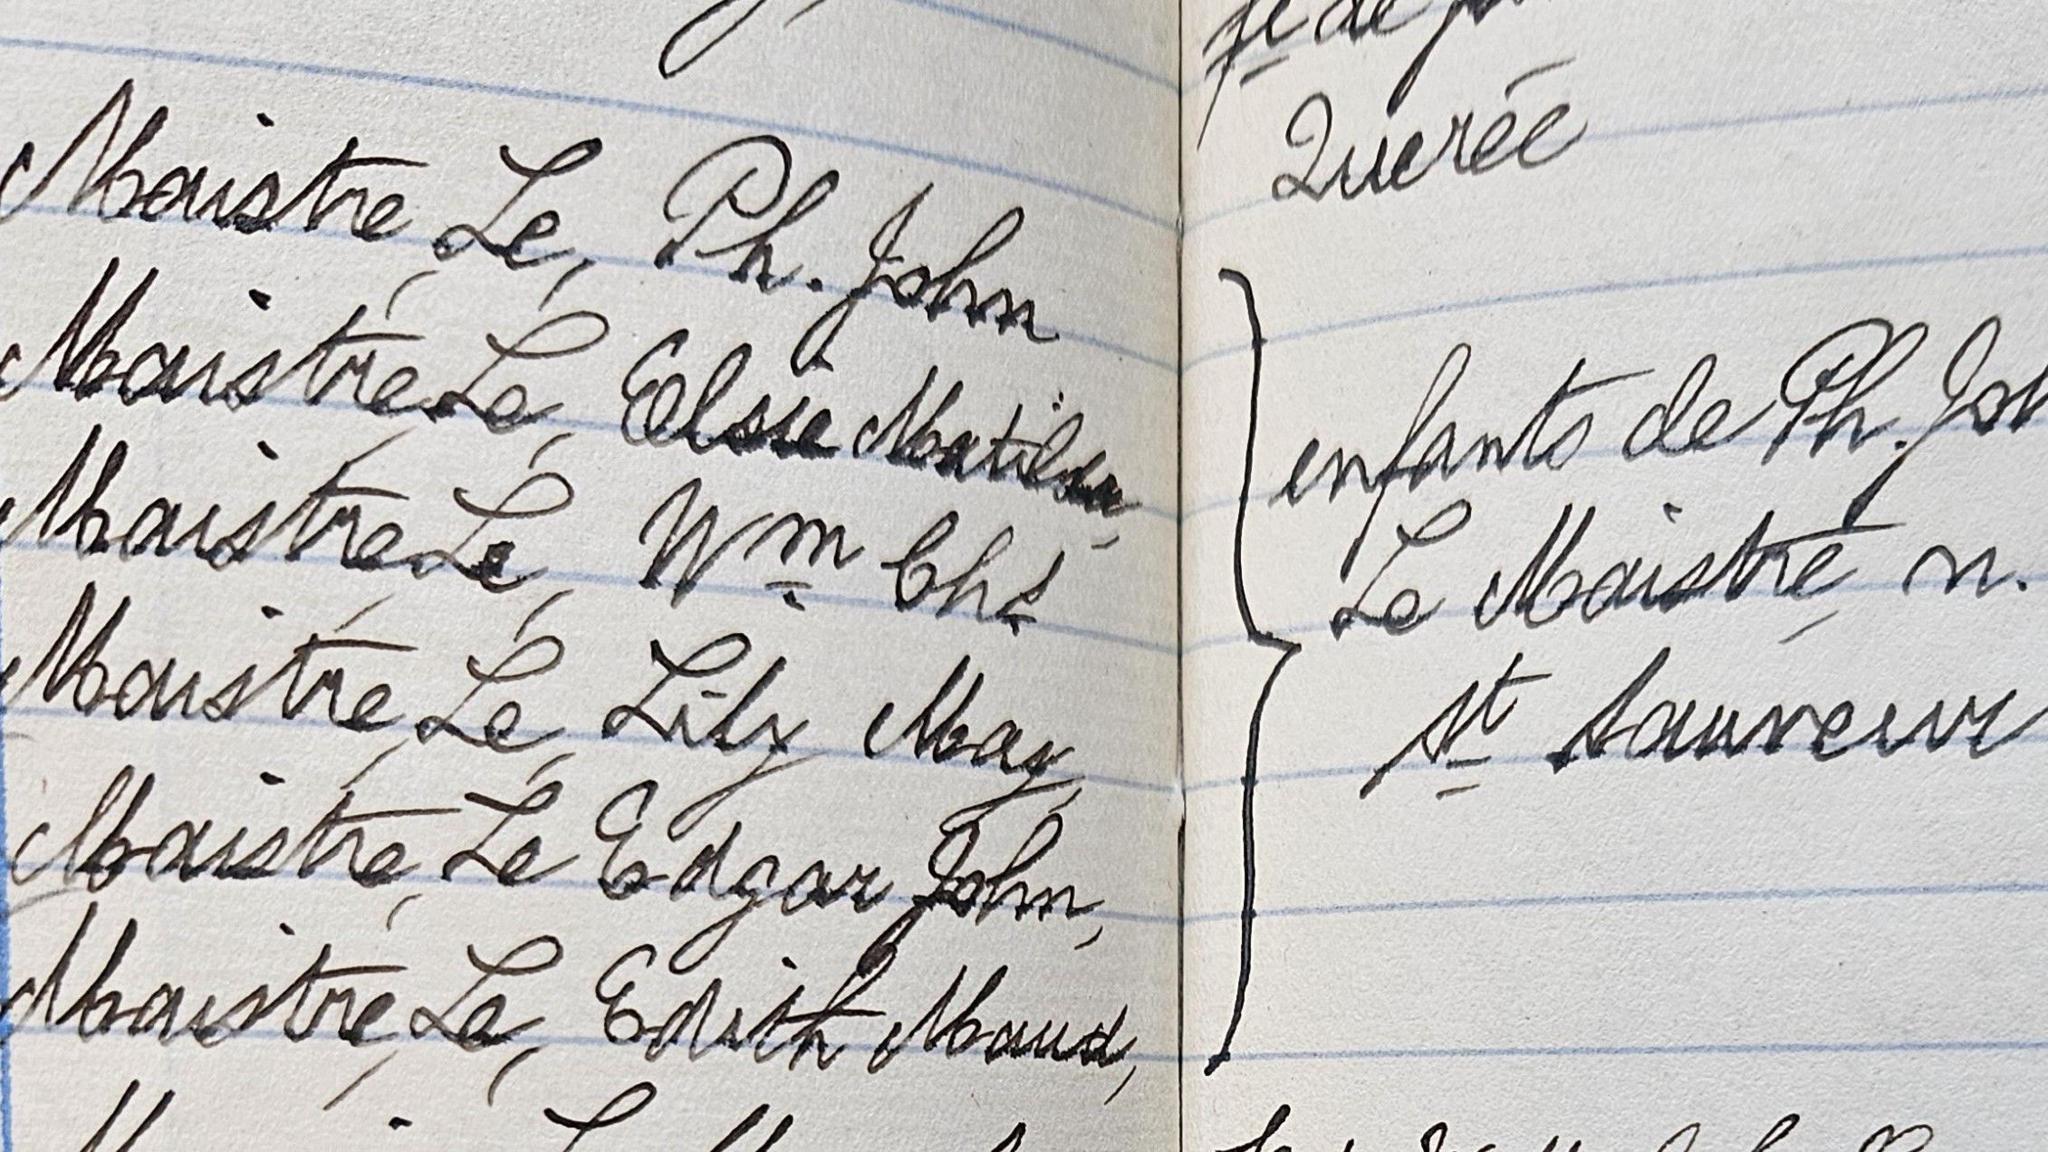 Querée
Maistre, Le, Ph. John
Maistre, Le, Elsie Matilda,
Maistre, Le, Wm Chs
Maistre, Le, Lily May,
Maistre, Le Edgar John,
Maistre, Le, Edith Maud,
enfants de Ph. Joh
Le Maistre, n.
St Sauveur